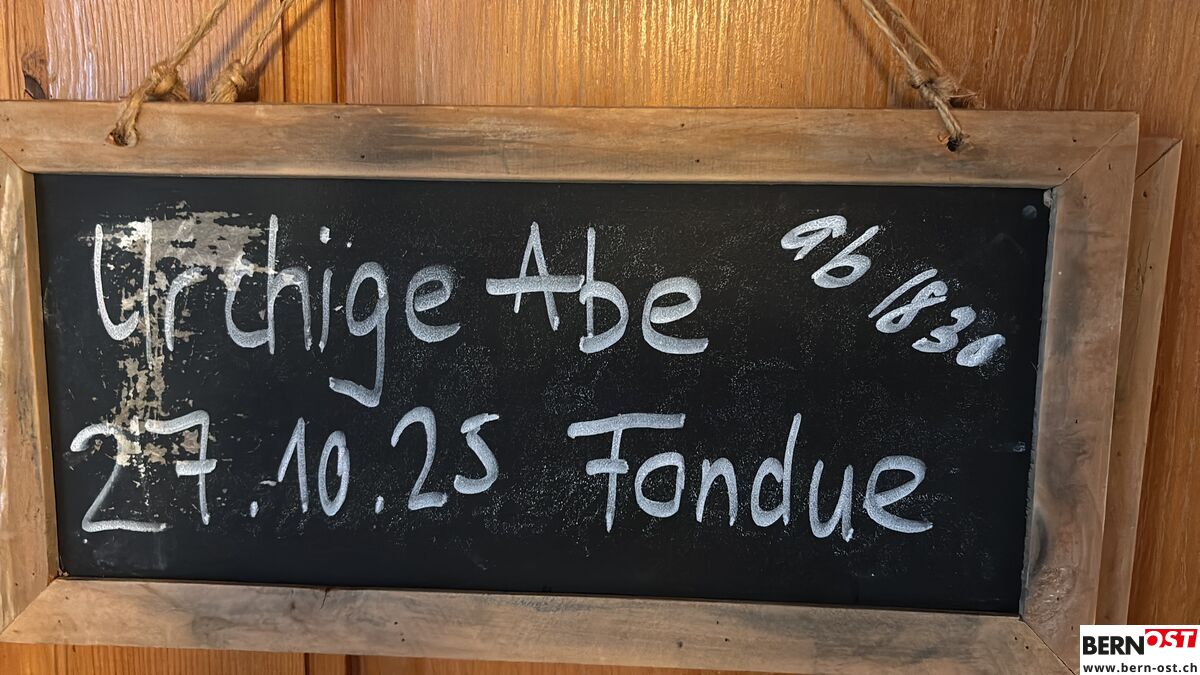 Urchige Abe
ab 1830
27.10.25 Fondue
BERNOST
www.bern-ost.ch